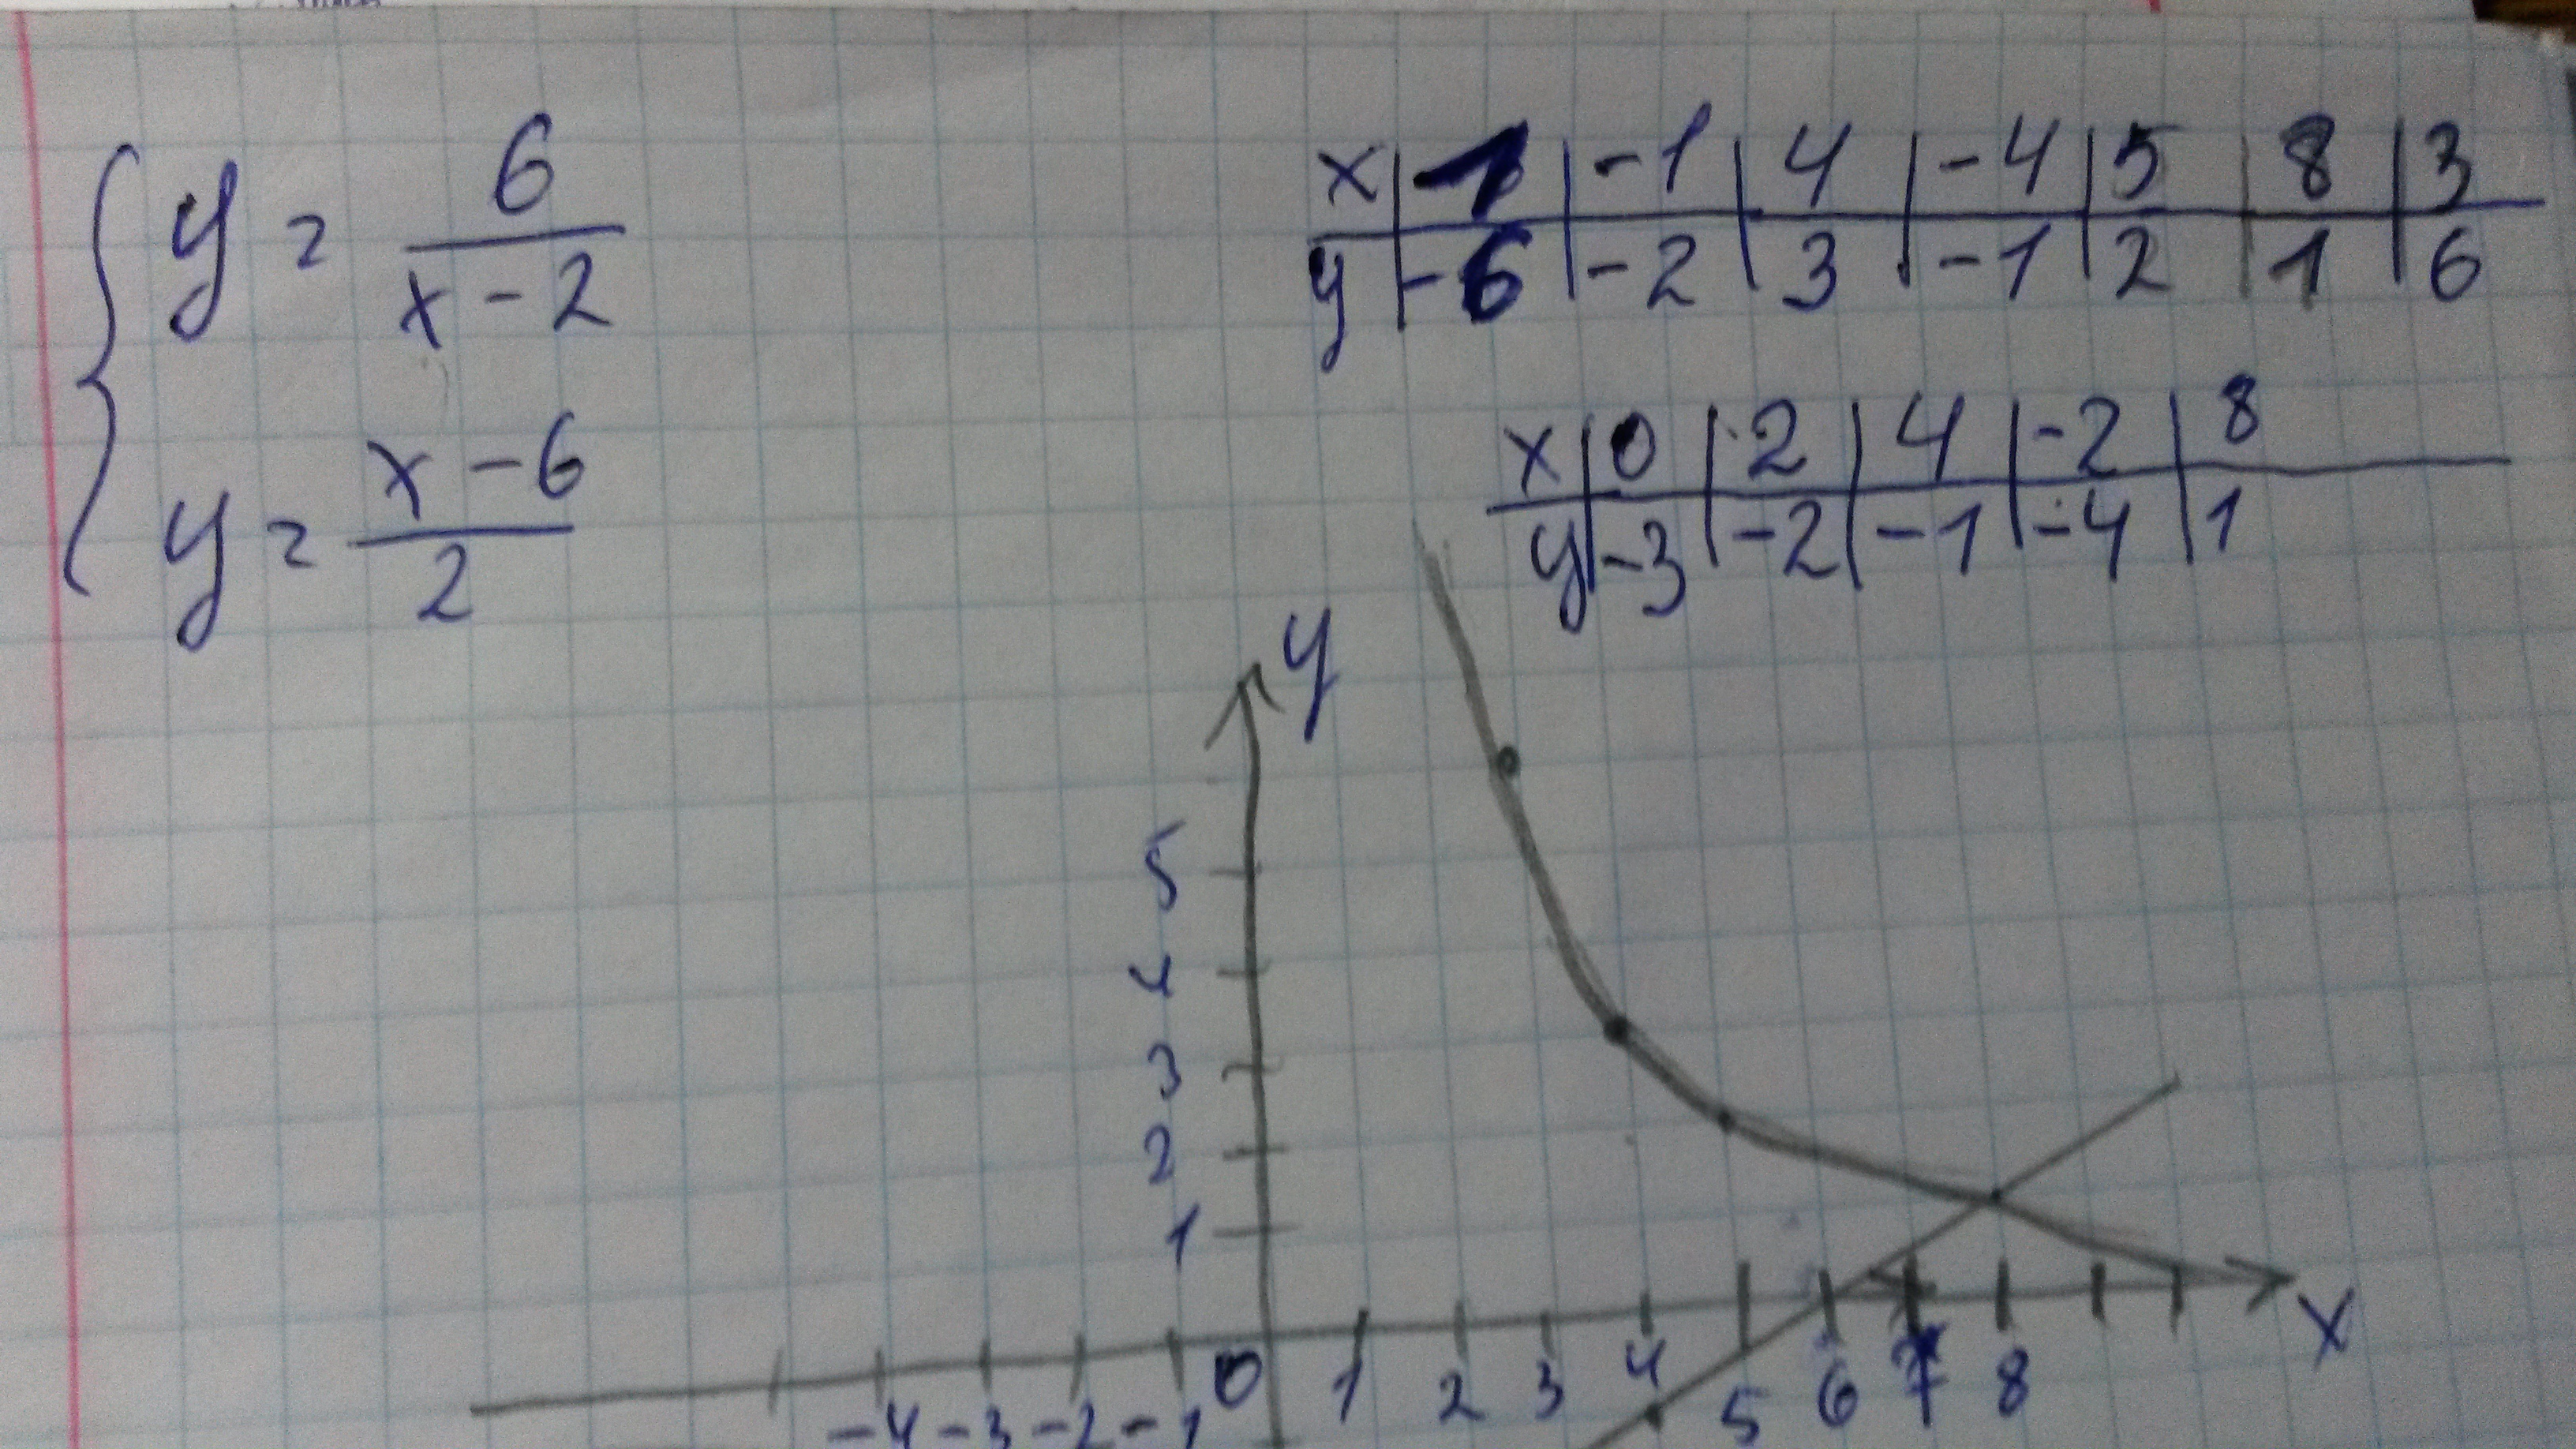 y = 6/(x-2)
y = (x-6)/2
x | 1 | -1 | 4 | -4 | 5 | 8 | 3
y | -6 | -2 | 3 | -1 | 2 | 1 | 6
x | 0 | 2 | 4 | -2 | 8
y | -3 | -2 | -1 | -4 | 1
y
5
4
3
2
1
-4 -3 -2 -1 0 1 2 3 4 5 6 7 8 x